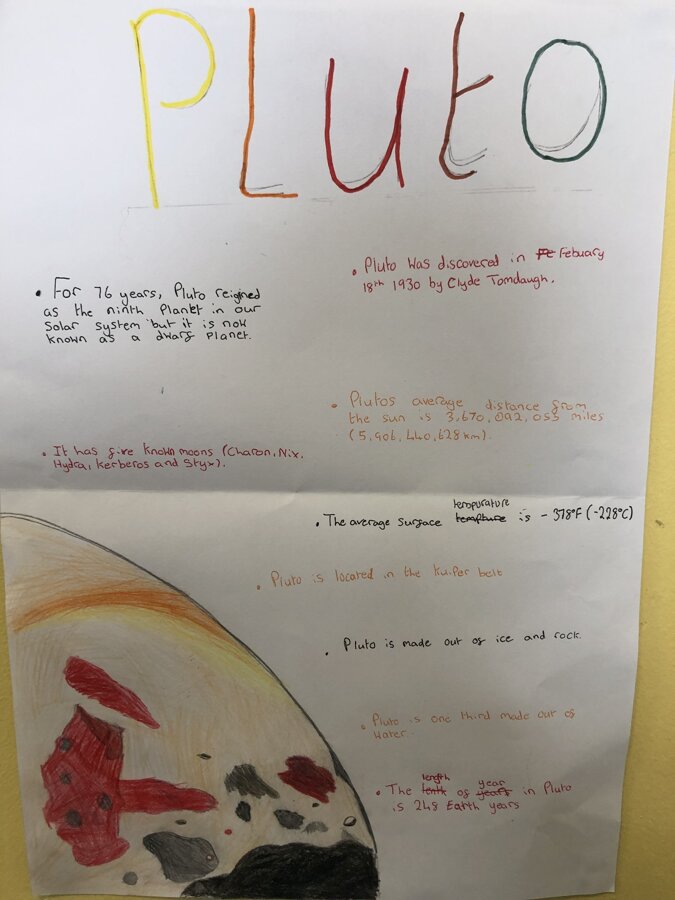 Pluto
• For 76 years, Pluto reigned
as the ninth Planet in our
Solar system but it is now
known as a dwarf Planet.
• Pluto was discovered in Febuary
18th 1930 by Clyde Tomdaugh.
• Plutos average distance from
the sun is 3,670,092,055 miles
(5,906,440,628 km).
• It has five known moons (Charon, Nix,
Hydra, Kerberos and Styx).
• The average surface tempurature is -378°F (-228°C)
• Pluto is located in the Kuiper belt
• Pluto is made out of ice and rock.
• Pluto is one third made out of
water.
• The length of year in Pluto
is 248 Earth years